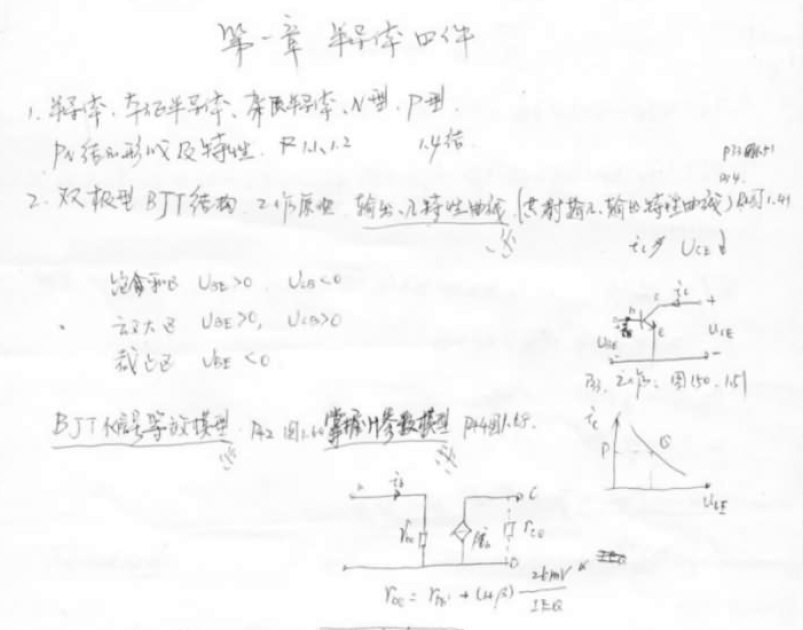 第一章 半导体四件
1. 半导体、本征半导体、杂质半导体、N型、P型.
PN结的形成及特性. 1.1、1.2 1.4结.
2. 双极型BJT结构. 工作原理. 输出、入特性曲线.(共射输入、输出特性曲线) 图1.49
ic UCE
饱和区 UBE>0, UCB<0
放大区 UBE>0, UCB>0
截止区 UBE<0
ic
+
UBE E UCE
-
P33. 工作 图1.50. 1.51
BJT小信号等效模型. P42 图1.60 掌握H参数模型 P44图1.65.
ic
P Q
UCE
ib C
rbe βib rce
rbe = rbb' + (1+β) 26mV
IEQ